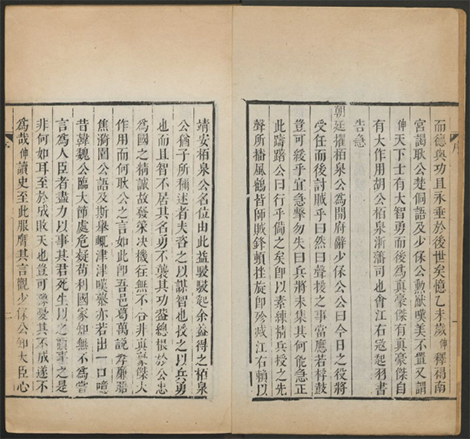 而德與功且永垂於後世矣憶乙未歲伸釋褐南
宮謁耿公楚侗語及少保公勲猷嘆美不置又謂
伸天下士有大智勇而後為真豪傑有真豪傑自
有大作用胡公栢泉浙藩司也會江右寇起羽書
告急
朝廷擢栢泉公為開府辭少保公公曰今日之役將
受任而後討賊乎曰然曰聲援之事當應若桴鼓
豈可緩乎宜急擊勿失曰兵將未集其何能急正
此躊躇公曰行乎之矣即以素練精兵授之先
聲所播風鶴皆師賊鋒頓挫旋即殄滅江右頼以
靖安栢泉公名位由此益駸駸起余益得之栢泉
公猶子所稱述者夫吝之以謀智也授之以兵勇
也而且智不居其名勇不襲其功總惟於公忠
為國之精誠故發采决機往無不合非真豪傑大
作用而何耿公之言如此即吾邑萬說
焦漪園公語及斯舉輒津津嘆慕若出一口噫
昔韓魏公臨大節處危疑苟利國家知無不為嘗
言為人臣者盡力以事其君死生以之顧事之是
非何如耳至於成敗天也豈可豫憂其不成遂不
為哉伸讀史至此服膺其言觀少保公知大臣心